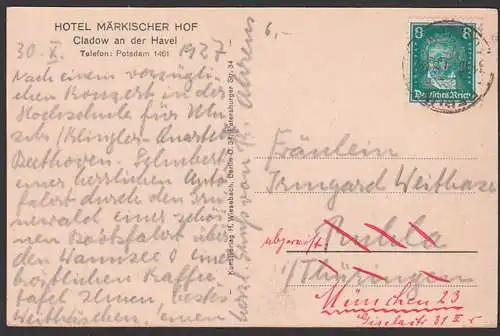 HOTEL MÄRKISCHER HOF
Cladow an der Havel
Telefon: Potsdam 1461
6,-
30. X. 1927
Nach einem vorzügli-
chen Konzert in der
Hochschule für Mu-
sik (Klingler-Quartett
Beethoven. Schubert
einer herrlichen Auto-
fahrt durch den Gru-
newald einer schö-
nen Bootsfahrt über
den Wannsee u. einer
köstlichen Kaffee
tafel Ihnen, bestes
Weithäschen, einen
herzl. Gruß von
Ahrens
Kunstverlag H. Wiesebach, Berlin O. 34, Petersburger Str. 34
8 8
Deutsches Reich
Fräulein
Irmgard Weithase
abgereist Ruhla
/Thüringen
München 23
Giselastr. 31 II r